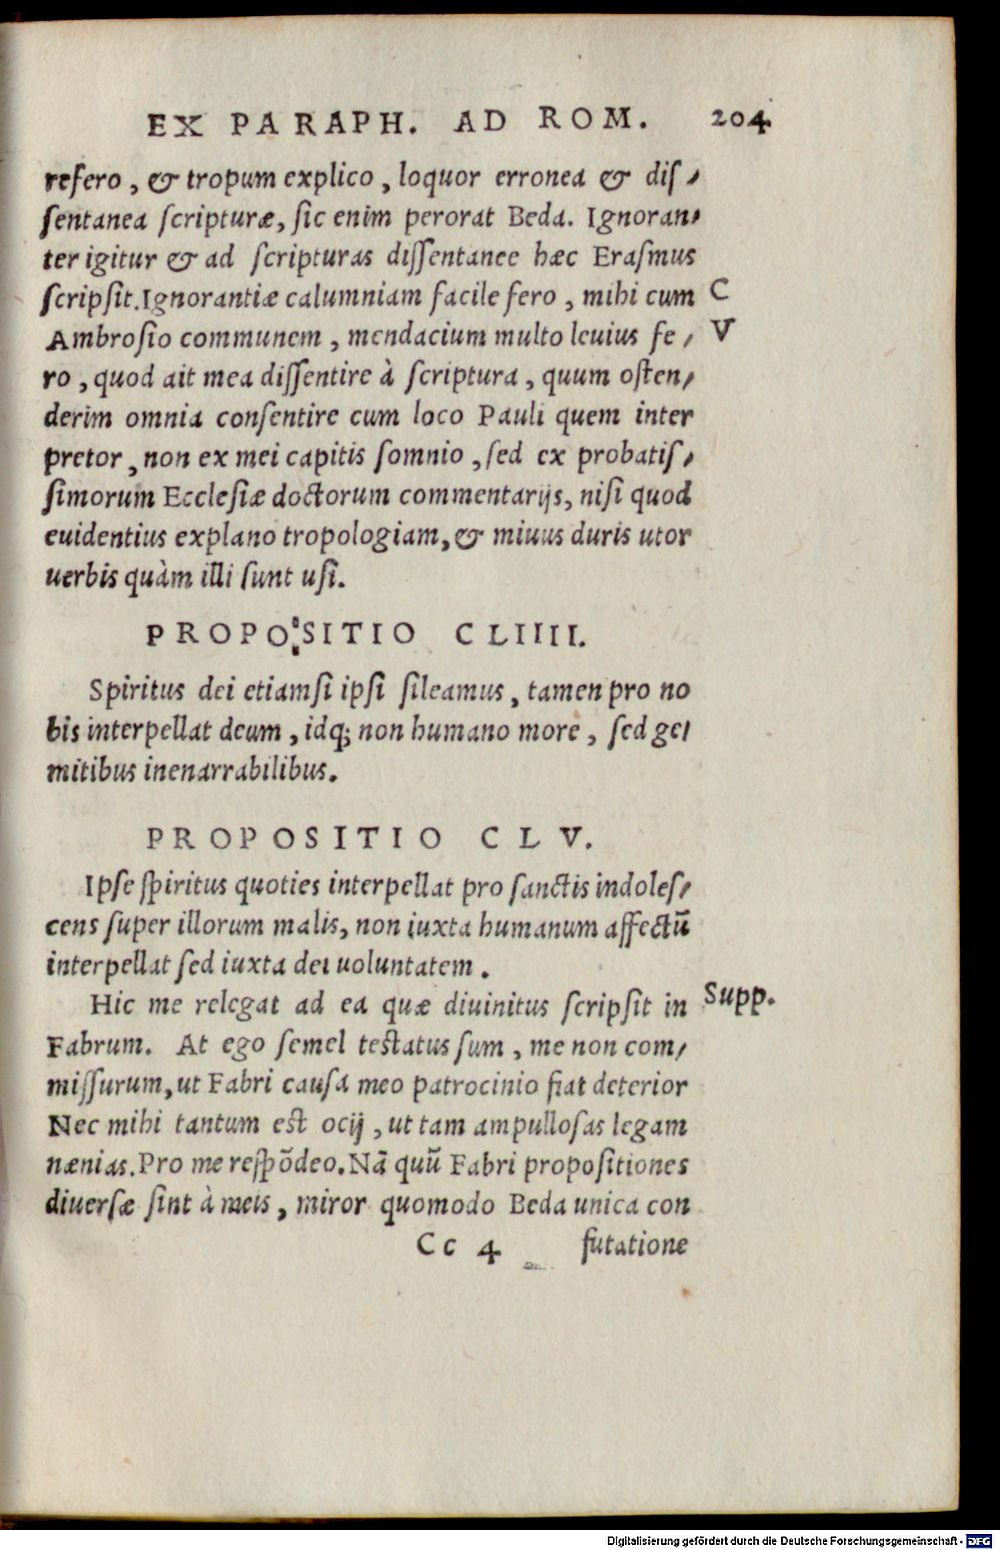 EX PARAPH. AD ROM. 204
refero, & tropum explico, loquor erronea & dis-
sentanea scripturæ, sic enim perorat Beda. Ignoran-
ter igitur & ad scripturas dissentanee hæc Erasmus
scripsit. Ignorantiæ calumniam facile fero, mihi cum C
Ambrosio communem, mendacium multo leuius fe- V
ro, quod ait mea dissentire à scriptura, quum osten-
derim omnia consentire cum loco Pauli quem inter
pretor, non ex mei capitis somnio, sed ex probatis-
simorum Ecclesiæ doctorum commentarijs, nisi quod
euidentius explano tropologiam, & miuus duris utor
uerbis quàm illi sunt usi.
PROPOSITIO CLIIII.
Spiritus dei etiamsi ipsi sileamus, tamen pro no
bis interpellat deum, idq; non humano more, sed ge-
mitibus inenarrabilibus.
PROPOSITIO CLV.
Ipse spiritus quoties interpellat pro sanctis indoles-
cens super illorum malis, non iuxta humanum affectũ
interpellat sed iuxta dei uoluntatem.
Hic me relegat ad ea quæ diuinitus scripsit in Supp.
Fabrum. At ego semel testatus sum, me non com-
missurum, ut Fabri causa meo patrocinio fiat deterior
Nec mihi tantum est ocij, ut tam ampullosas legam
nænias. Pro me respõdeo. Nã quũ Fabri propositiones
diuersæ sint à meis, miror quomodo Beda unica con
Cc 4 futatione
Digitalisierung gefördert durch die Deutsche Forschungsgemeinschaft - DFG